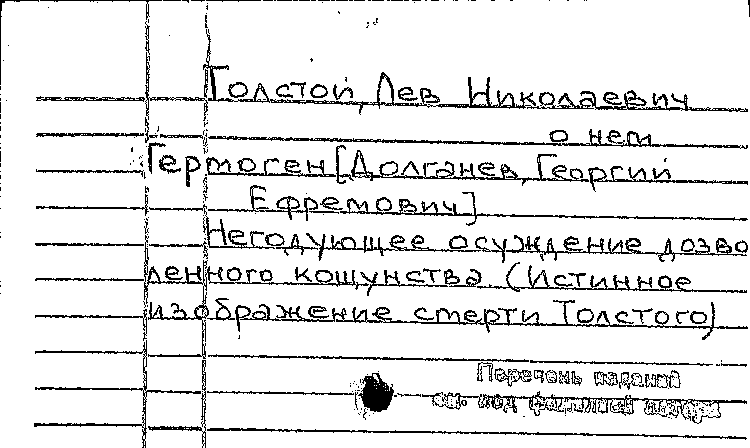 Толстой, Лев Николаевич
о нем
Гермоген [Долганев, Георгий
Ефремович]
Негодующее осуждение дозво
ленного кощунства (Истинное
изображение смерти Толстого)
Перечень изданий
см. под фамилией автора